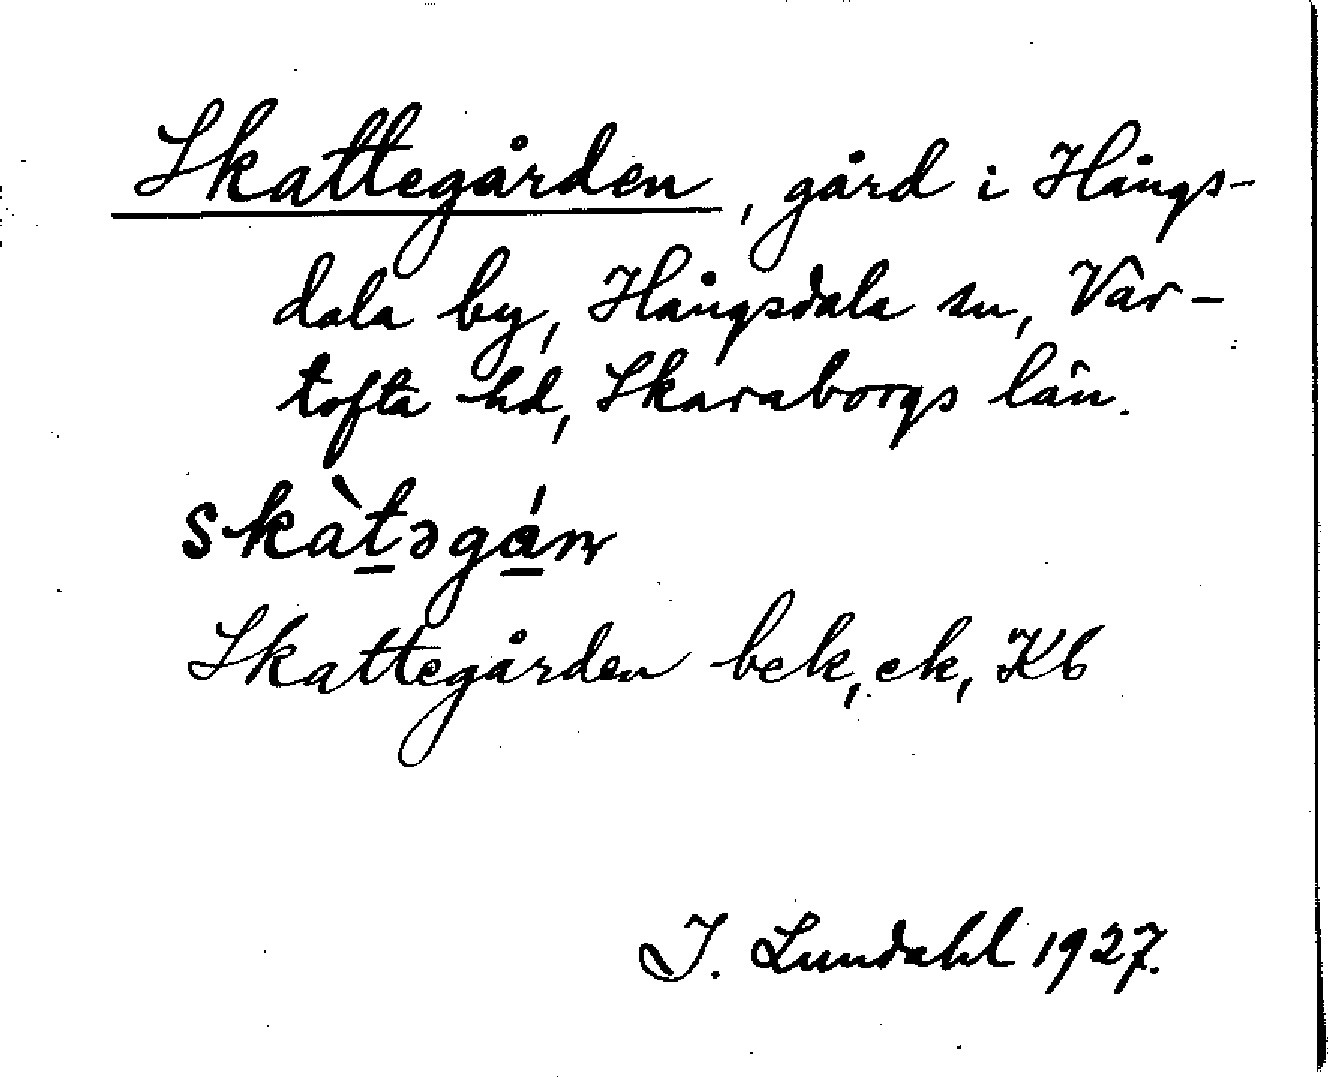 Skattegården, gård i Hångs-
dala by, Hångsdala sn, Var-
tofta hd, Skaraborgs län.
skàt̲əgá̲n
Skattegården bek, ek, Kb
I. Lundahl 1927.